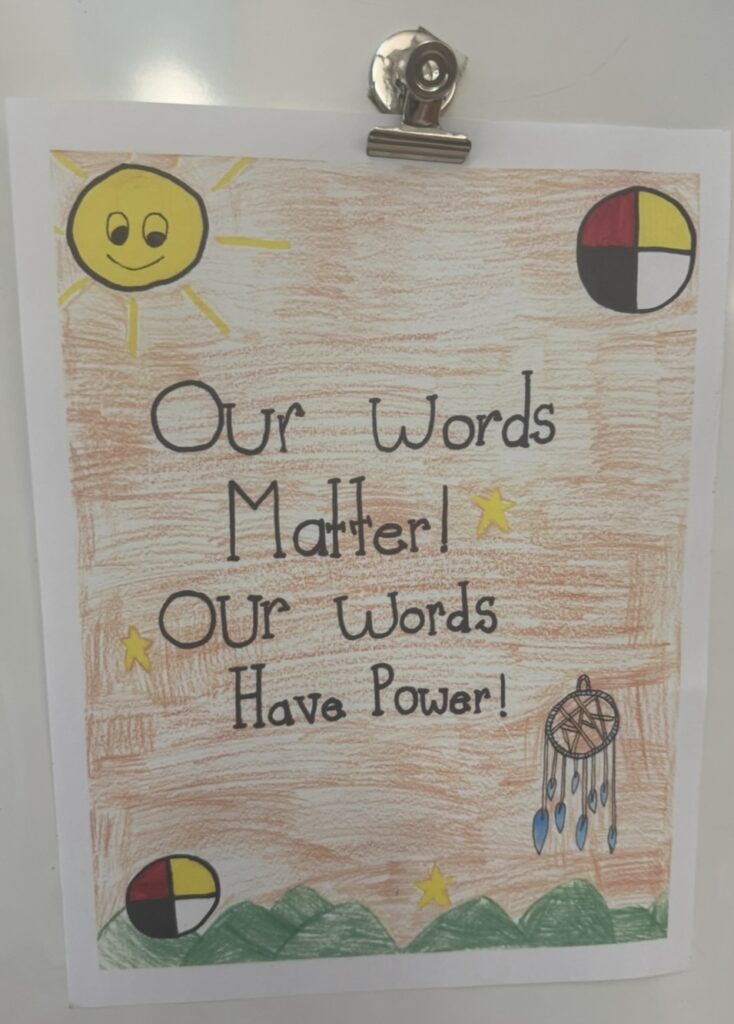 Our Words
Matter!
Our Words
Have Power!